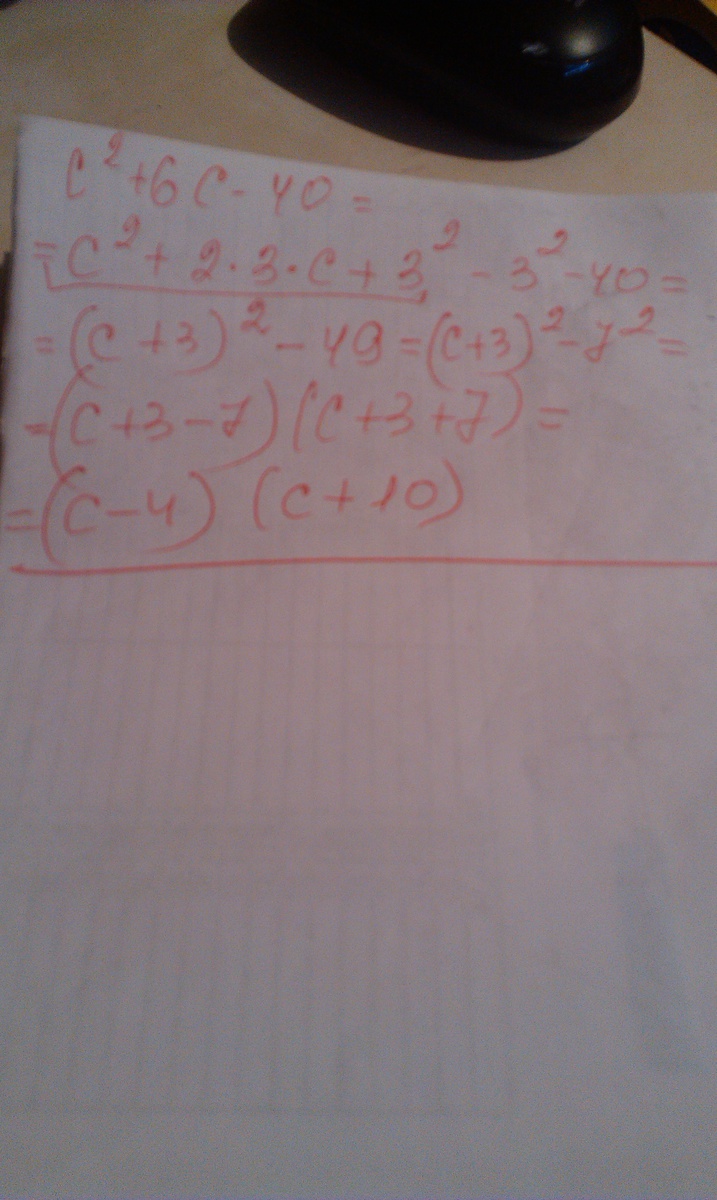 c²+6c-40=
=c²+2·3·c+3²-3²-40=
=(c+3)²-49=(c+3)²-7²=
=(c+3-7)(c+3+7)=
=(c-4)(c+10)